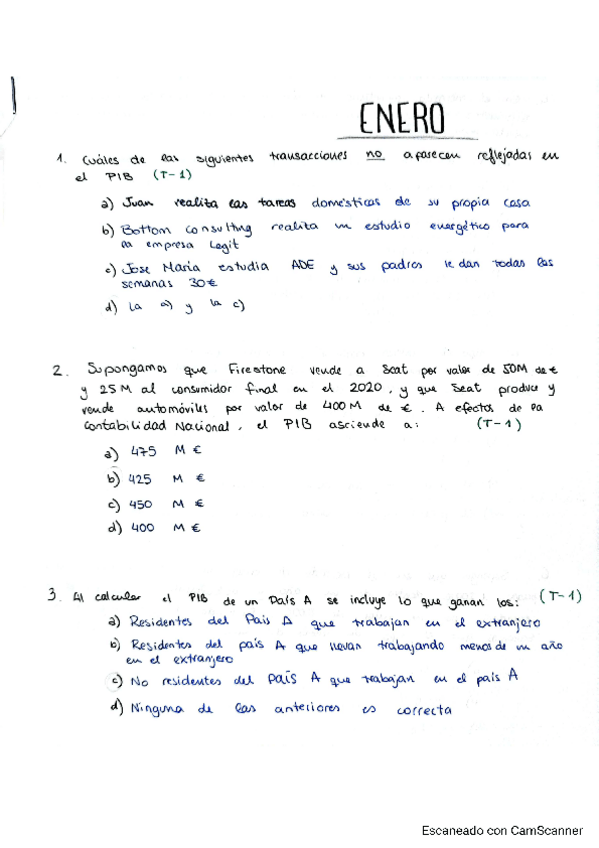 ENERO
1. Cuáles de las siguientes transacciones no aparecen reflejadas en
el PIB (T-1)
a) Juan realita las tareas domésticas de su propia casa
b) Bottom consulting realita un estudio energético para
la empresa Legit
c) Jose Maria estudia ADE y sus padres le dan todas las
semanas 30€
d) La a) y la c)
2. Supongamos que Firestone vende a Seat por valor de 50M de €
y 25M al consumidor final en el 2020, y que Seat produce y
vende automóviles por valor de 400M de €. A efectos de la
Contabilidad Nacional, el PIB asciende a: (T-1)
a) 475 M €
b) 425 M €
c) 450 M €
d) 400 M €
3. Al calcular el PIB de un País A se incluye lo que ganan los: (T-1)
a) Residentes del País A que trabajan en el extranjero
b) Residentes del país A que llevan trabajando menos de un año
en el extranjero
c) No residentes del país A que trabajan en el país A
d) Ninguna de las anteriores es correcta
Escaneado con CamScanner